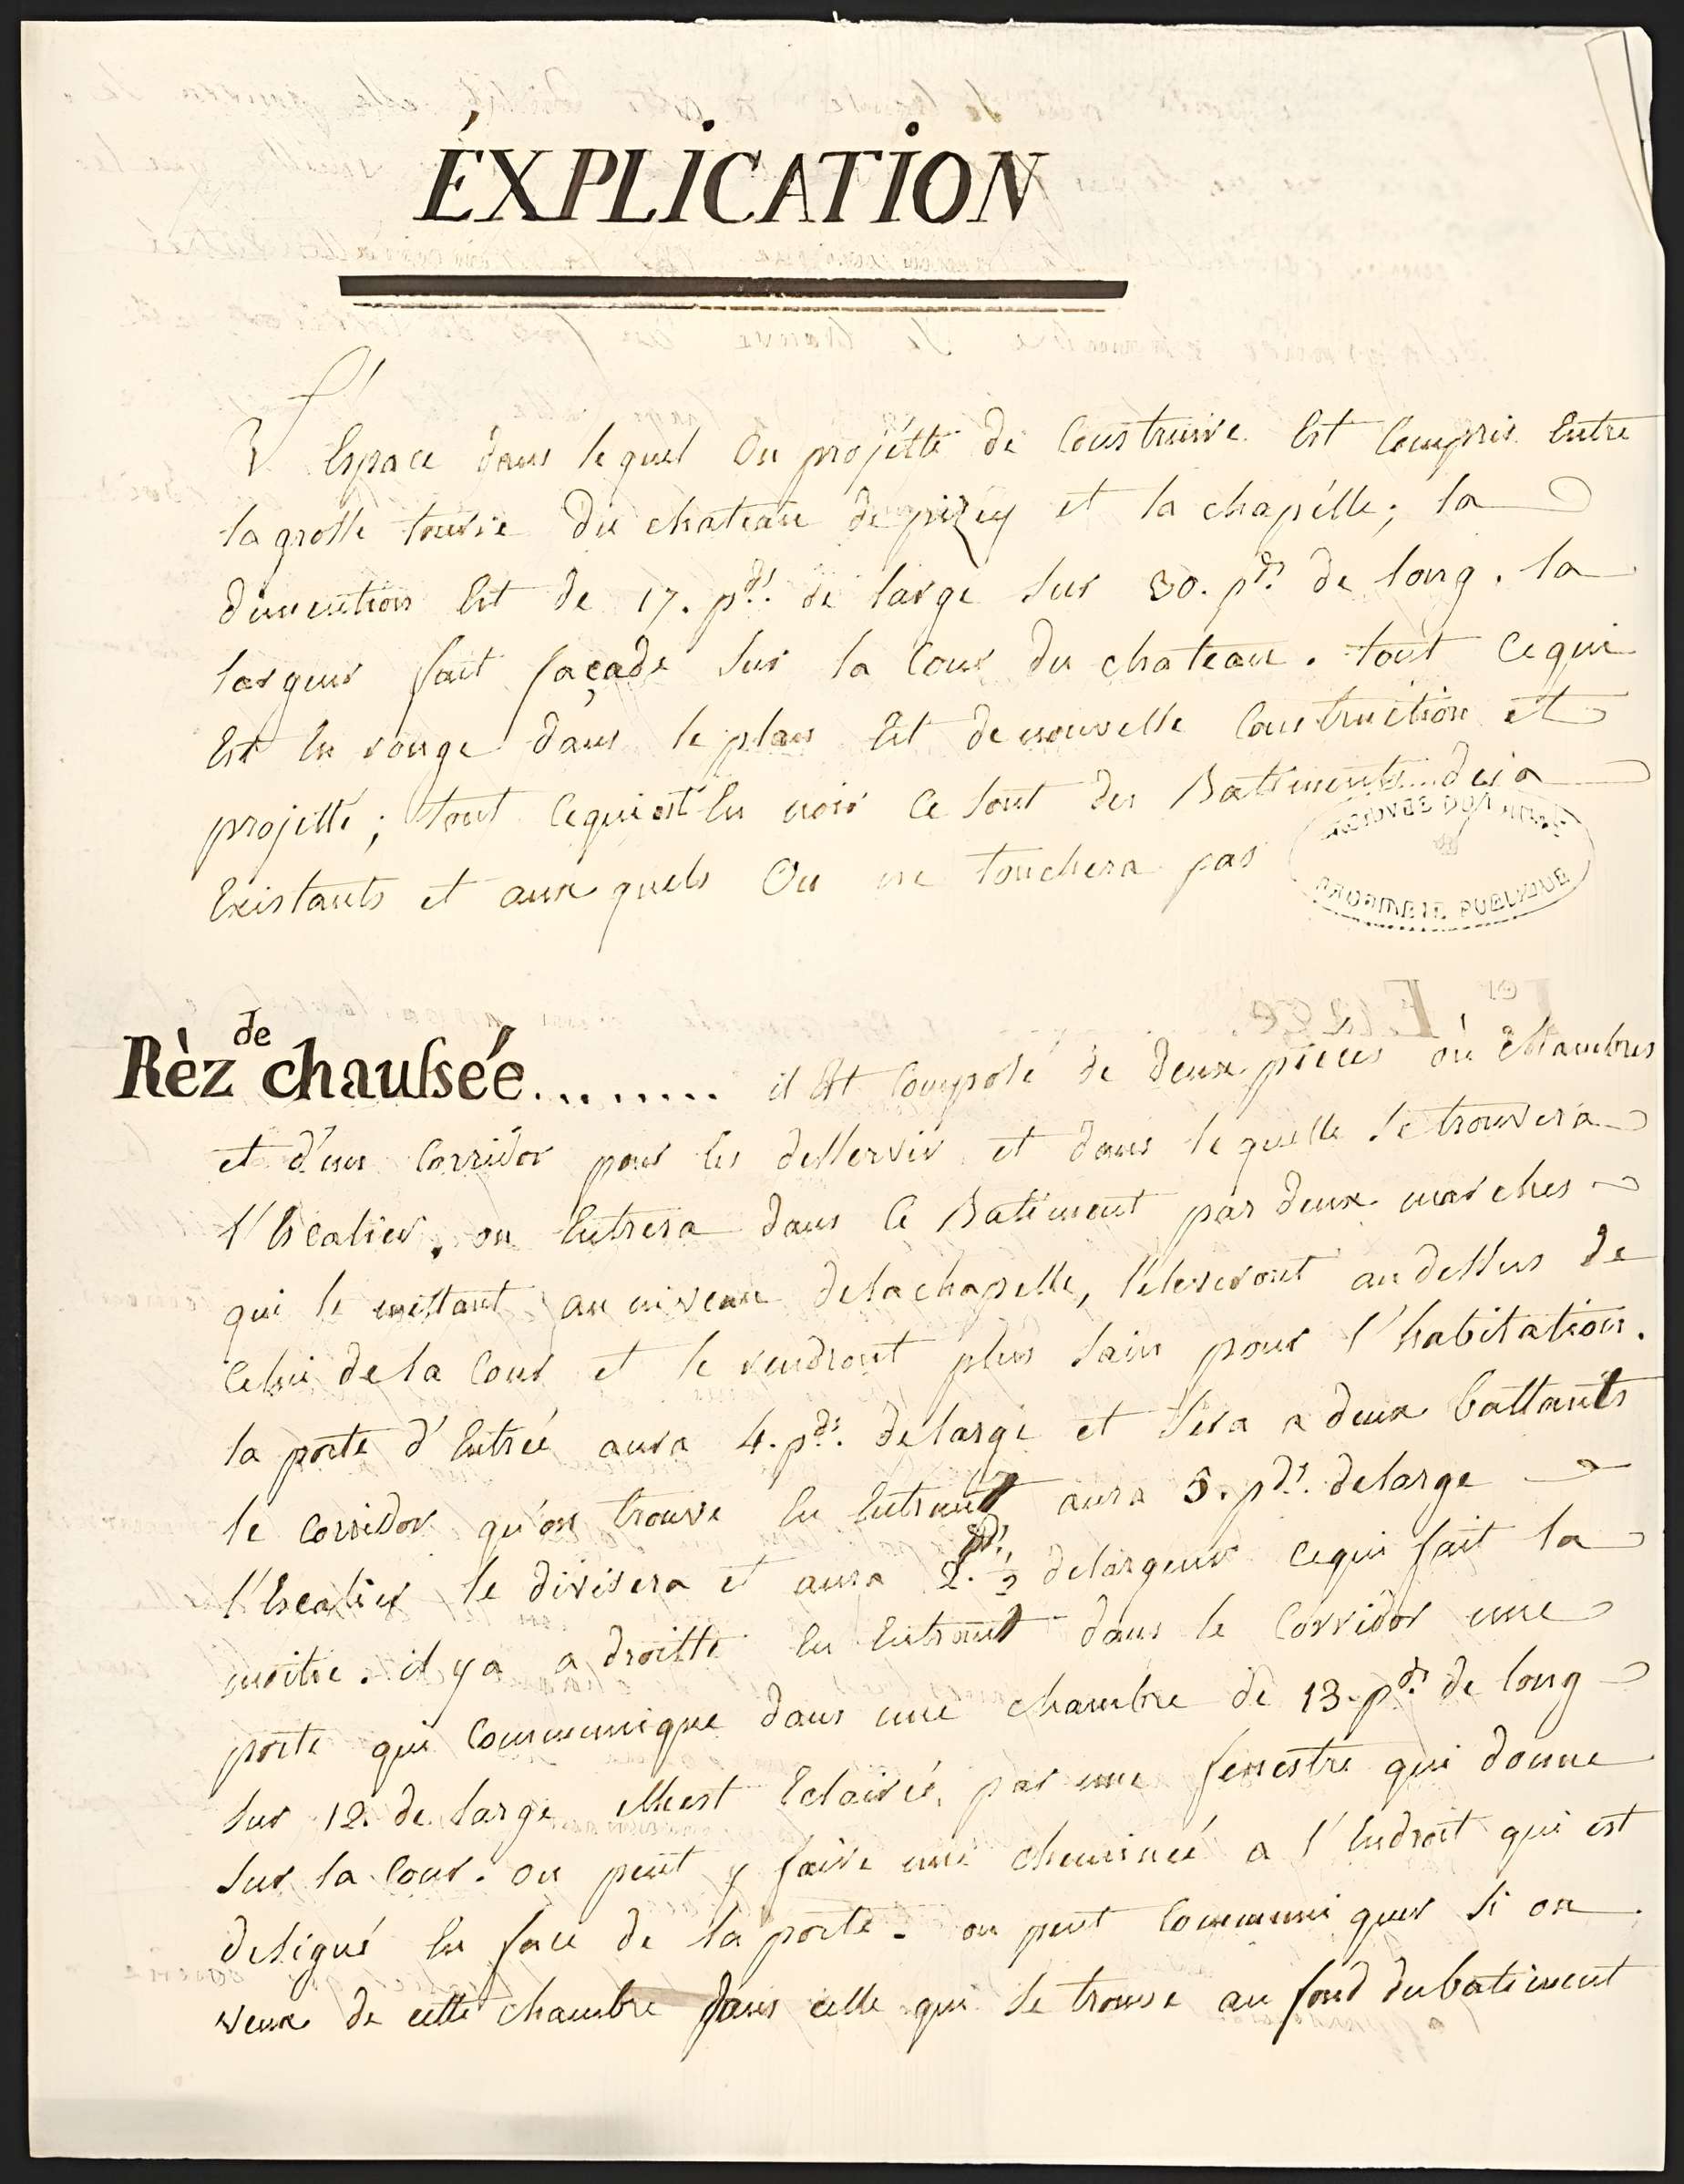 ÉXPLICATION
L'Espace dans le quel On projétte de Construire Est Compris Entre
la grosse tourre du chateau de pizey et la chapélle; la
dimention Est de 17. pds. de large sur 30. pds. de long. la
largeur fait façade sur la Cour du chateau. tout Ce qui
Est En rouge dans le plan Est de nouvelle Construction et
projetté; tout Ce qui est En noir Ce sont des Batiments deja
Existants et aux quels On ne touchera pas
PROPRIETE PUBLIQUE
Rèz de chaussée........ il Est Composé de deux pieces où Chambres
et d'un Corridor pour les desservir et dans le quelle se trouvera
l'Escalier. on Entrera dans Ce Batiment par deux marches
qui le mettant au niveau de la chapelle, l'eleveront au dessus de
Celui de la Cour et le rendront plus sain pour l'habitation.
la porte d'Entrée aura 4. pds. de large et sera a deux battants
le corridor qu'on trouve En Entrant aura 5. pds. de large
l'Escalier le divisera et aura 2. pds. ½ de largeur Ce qui fait la
moitie. il y a a droitte En Entrant dans le Corridor une
porte qui Communique dans une chambre de 13. pds. de long
sur 12. de large elle est Eclairée, par une fenestre qui donne
sur la Cour. on peut y faire une cheminée a l'Endroit qui est
designé En face de la porte. on peut Communiquer si on
veux de cette chambre dans celle qui se trouve au fond du batiment